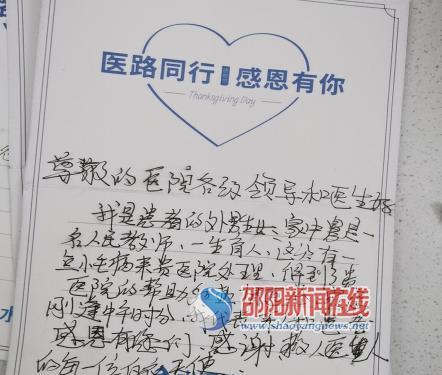 医路同行 感恩有你
Thanksgiving Day
尊敬的医院各级领导和医生好
我是患者的外甥女,家中
名人民教师,一生育人,这次有一
点小毛病来贵医院处理,得到了贵
医院的帮助
刚逢中午时分,
感恩有您们,感谢救人医
的每一位白衣天使
邵阳新闻在线
www.shaoyangnews.net